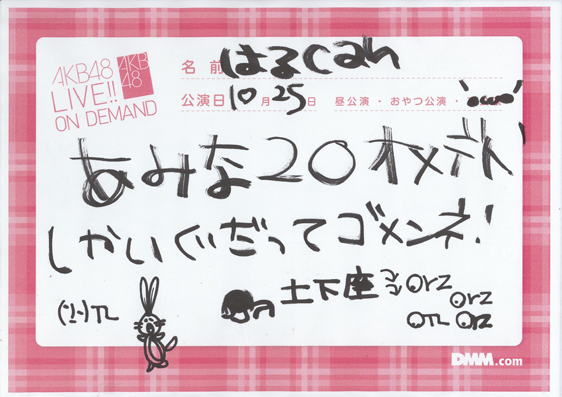 AKB48
LIVE!!
ON DEMAND
AKB
48
名前 はるcan
公演日 10月25日 昼公演・おやつ公演・
あみな20オメデト
しかいぐだってゴメンネ!
土下座 orz
orz
OTL orz
DMM.com